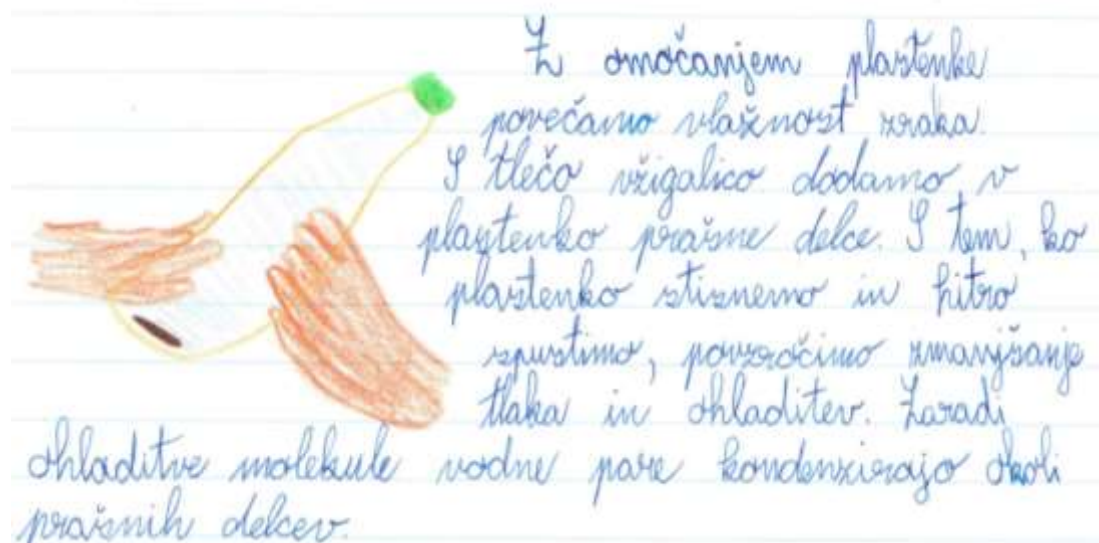 Z omočanjem plastenke
povečamo vlažnost zraka.
S tlečo vžigalico dodamo v
plastenko prašne delce. S tem, ko
plastenko stisnemo in hitro
spustimo, povzročimo zmanjšanje
tlaka in ohladitev. Zaradi
ohladitve molekule vodne pare kondenzirajo okoli
prašnih delcev.